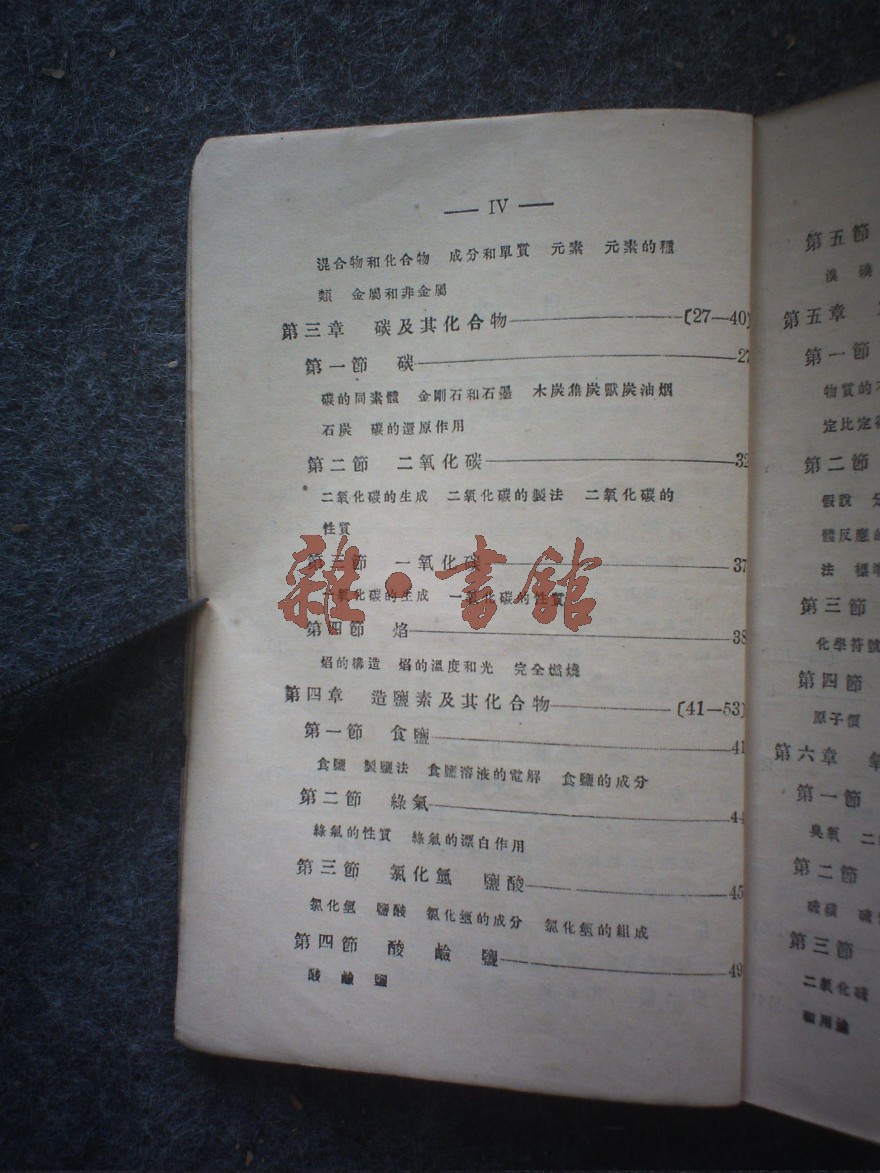 — IV —
混合物和化合物 成分和單質 元素 元素的種
類 金屬和非金屬
第三章 碳及其化合物 (27—40)
第一節 碳 27
碳的同素體 金剛石和石墨 木炭焦炭獸炭油烟
石炭 碳的還原作用
第二節 二氧化碳 32
二氧化碳的生成 二氧化碳的製法 二氧化碳的
性質
第三節 一氧化碳 37
一氧化碳的生成 一氧化碳的性質
第四節 焰 38
焰的構造 焰的溫度和光 完全燃燒
第四章 造鹽素及其化合物 (41—53)
第一節 食鹽 41
食鹽 製鹽法 食鹽溶液的電解 食鹽的成分
第二節 綠氣 44
綠氣的性質 綠氣的漂白作用
第三節 氯化氫 鹽酸 45
氯化氫 鹽酸 氯化氫的成分 氯化氫的組成
第四節 酸 鹼 鹽 49
酸 鹼 鹽
雜·書館
第五節
溴 碘
第五章
第一節
物質的不
定比定律
第二節
假說 分
體反應的
法 標準
第三節
化學符號
第四節
原子價
第六章 氧
第一節
臭氧 二
第二節
硫磺 硫
第三節
二氧化硫